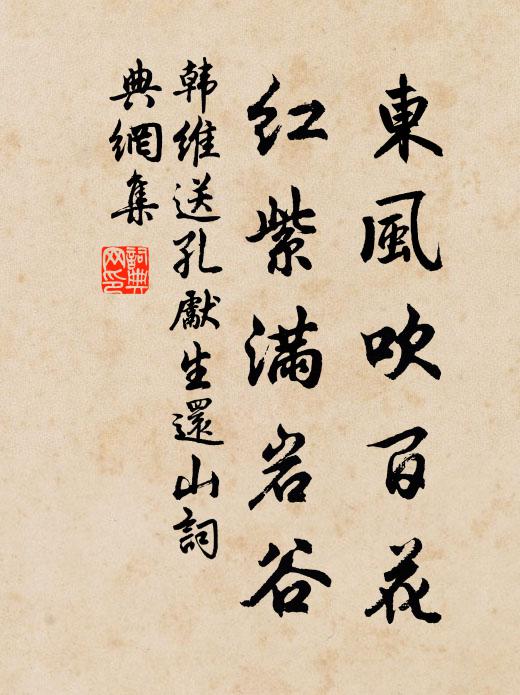 東風吹百花
红紫满岩谷
韩維送孔獻生還山詞
典網集
詞典
网印